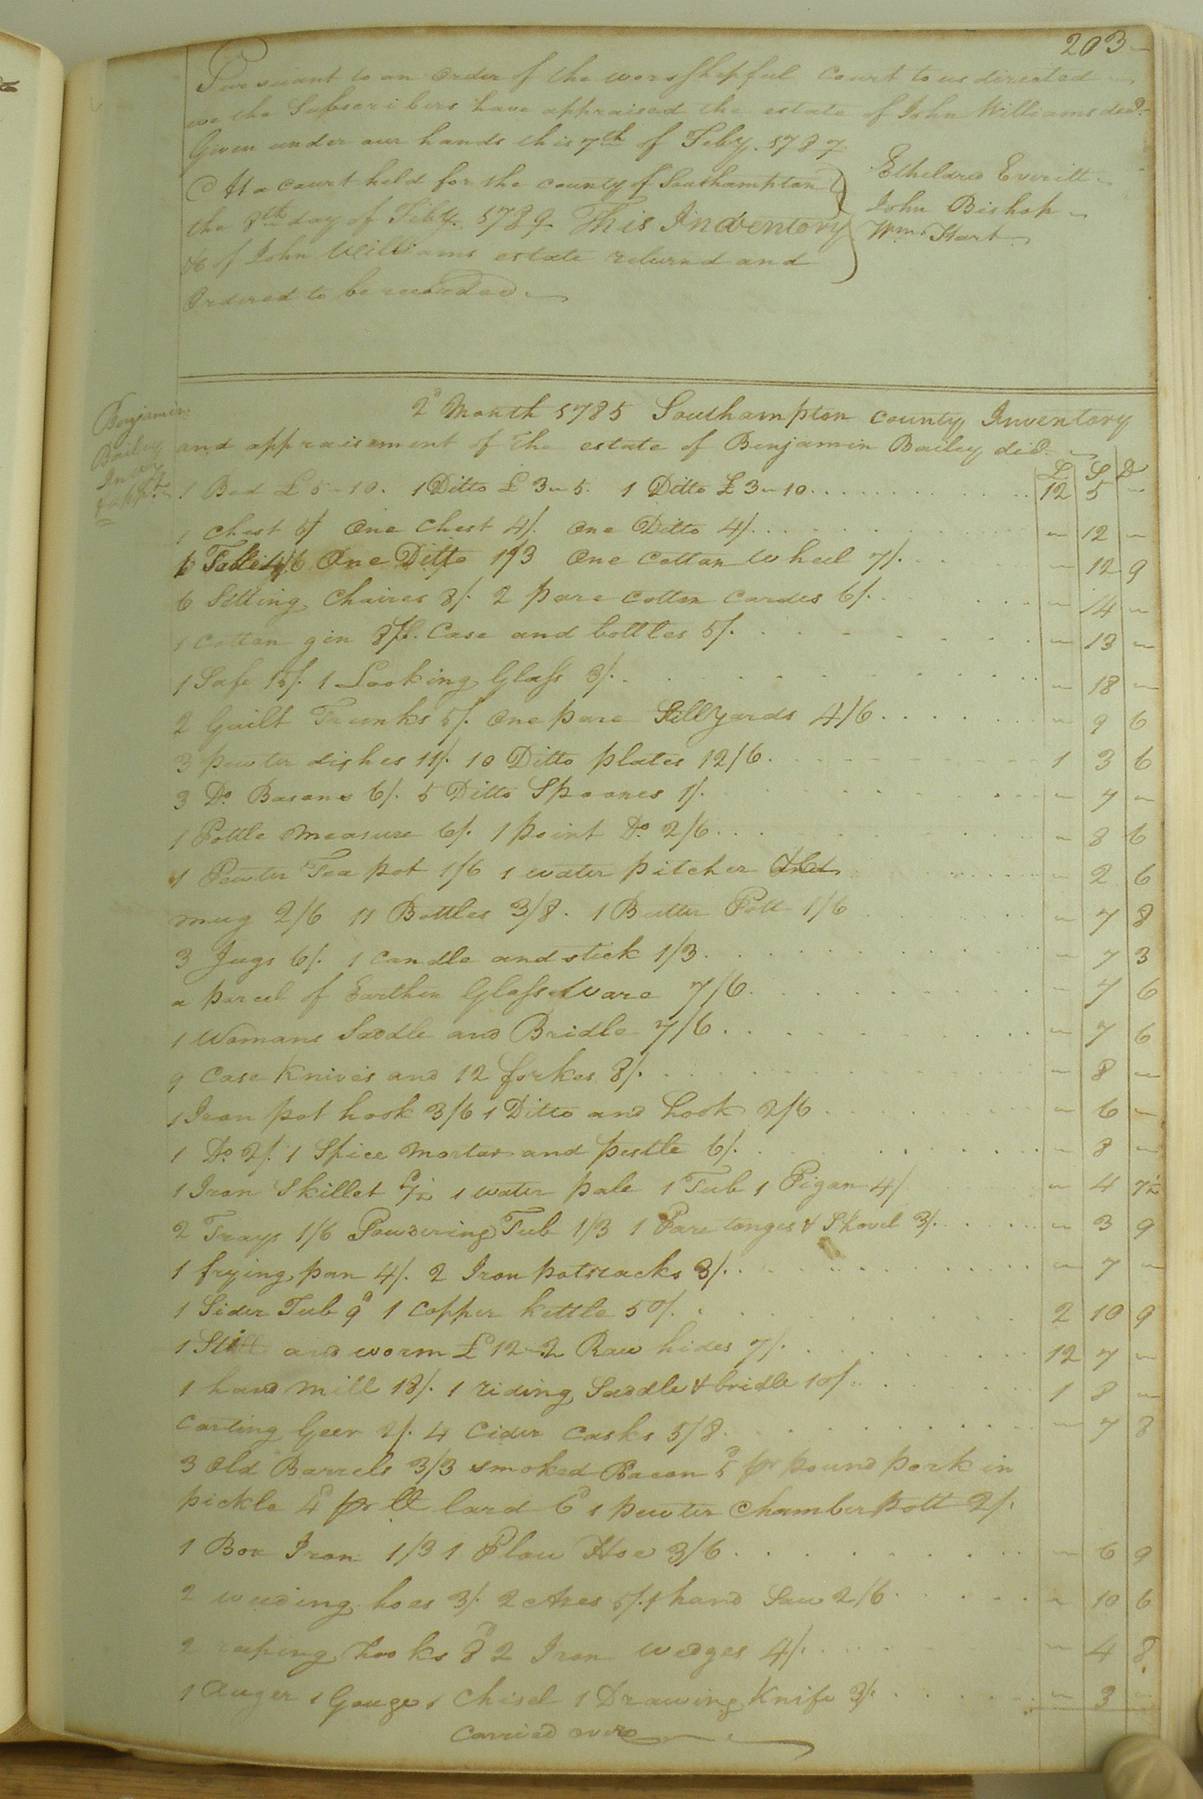 203
Pursuant to an order of the worshipful Court to us directed
we the Subscribers have appraised the estate of John Williams decd.
Given under our hands this 7th of Feby. 1787
Ethelred Everitt
John Bishop
Wm. Hart
At a court held for the county of Southampton
the 8th day of Feby. 1789 This Inventory
&c of John Williams estate returnd and
Ordered to be recorded.
Benjamin
Bailey
Inven
2d Month 1785 Southampton county Inventory
and appraisement of the estate of Benjamin Bailey decd.
£ S D
1 Bed £ 5-10. 1 Ditto £ 3-5. 1 Ditto £ 3-10 12 5 -
1 Chest One Chest 4/. One Ditto 4/. - 12 -
One Ditto 1/3 One Cotton Wheel 7/. - 12 9
6 Sitting Chaires 8/. 2 pare cotton cardes 6/. - 14 -
1 Cotton gin 8/. Case and bottles 5/. - 13 -
1 Safe 15/. 1 Looking Glass 3/. - 18 -
2 Guilt Trunks 5/. One pare Stillyards 4/6 - 9 6
3 pewter dishes 11/. 10 Ditto plates 12/6 1 3 6
3 Do. Basons 6/. 5 Ditto Spoones 1/. - 7 -
1 Pottle Measure 6/. 1 point Do. 2/6 - 8 6
1 Pewter Tea pot 1/6 1 water pitcher - 2 6
mug 2/6 11 Bottles 3/8. 1 Butter Pott 1/6 - 7 8
3 Jugs 6/. 1 Candle and stick 1/3 - 7 3
a parcel of Earthen Glass Ware 7/6 - 7 6
1 Womans Saddle and Bridle 7/6 - 7 6
9 Case Knives and 12 forkes 8/. - 8 -
1 Iron pot hook 3/6 1 Ditto and hook 2/6 - 6 -
1 Do. 2/. 1 Spice Mortar and pestle 6/. - 8 -
1 Iron Skillet 1 water pale 1 Tub 1 Pigan 4/ - 4 7½
2 Trays 1/6 Powdering Tub 1/3 1 Pare tonges & Shovel 3/. - 3 9
1 frying pan 4/. 2 Iron potracks 3/. - 7 -
1 Sider Tub 9d 1 Copper kettle 50/. 2 10 9
1 Still and worm £ 12 2 Raw hides 7/. 12 7 -
1 hand mill 18/. 1 riding Saddle & bridle 10/. 1 8 -
Carting Geer 2/. 4 Cider Casks 5/8 - 7 8
3 Old Barrels 3/3 smoked Bacon 5d pr pound pork in
pickle 4d pr lb lard 6d 1 pewter Chamber pott 2/.
1 Box Iron 1/3 1 Plow Hoe 3/6 - 6 9
2 weeding hoes 3/. 2 Axes 5/. 1 hand Saw 2/6 - 10 6
2 reaping hooks 8d 2 Iron wedges 4/. - 4 8
1 Auger 1 Gouge 1 Chisel 1 Drawing Knife 3/. - 3 -
Carried over